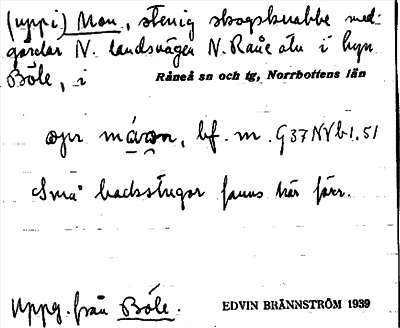 (uppi) Mon, stenig skogsknabbe med-
gårdar N. landsvägen N. Råne älv i byn
Böle, i Råneå sn och tg, Norrbottens län
mä̀van, bf. m. G37NVb1.51
Små backstugor funns här förr.
Uppg. från Böle. EDVIN BRÄNNSTRÖM 1939